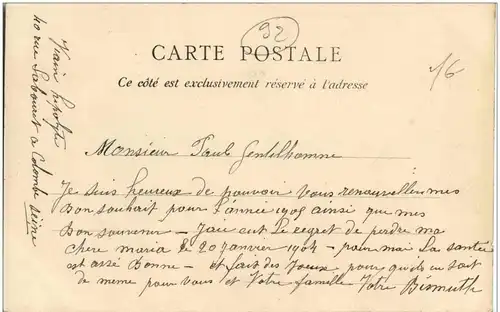 92
CARTE POSTALE
Ce côté est exclusivement réservé à l'adresse
16
Monsieur Paul Gentilhomme
Je suis heureux de pouvoir vous renouveller mes
Bon souhait pour l'année 1905 ainsi que mes
Bon souvenir - jaie eut le regret de perdre ma
chere maria le 20 janvier 1904 - pour mai la santé
est assé Bonne - et fait des voeux pour quils en soit
de meme pour vous et votre famille votre
40 rue Labouret a Colombe
seine